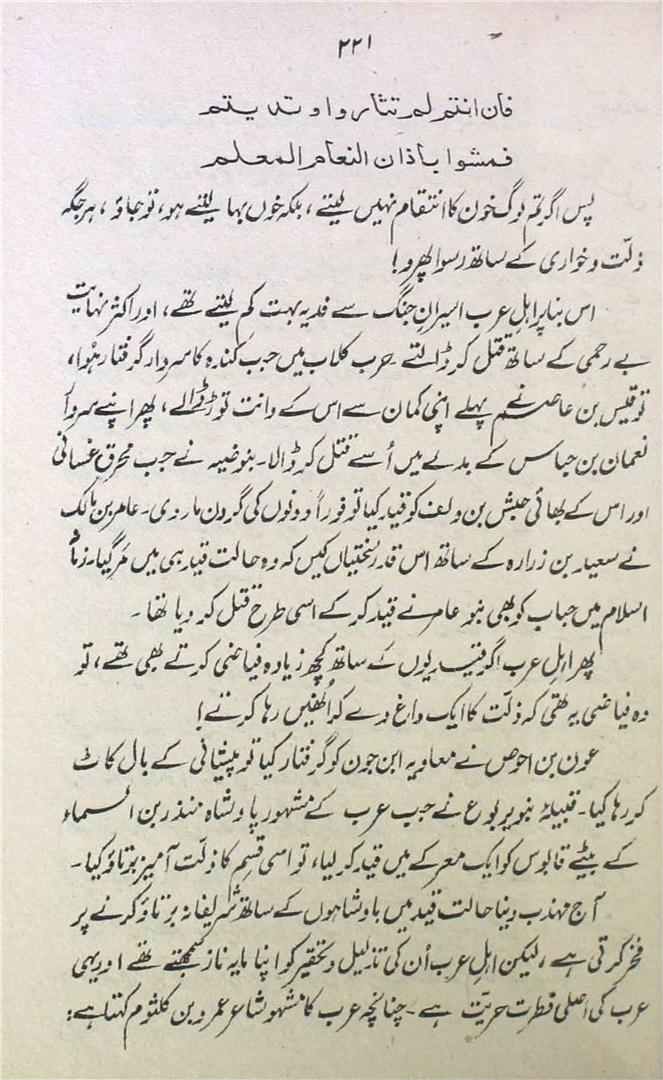 ۲۲۱
فان انتم لم تثاروا وتدیتم
فمشوا باذان النعام المعلم
پس اگر تم لوگ خون کا انتقام نہیں لیتے، بلکہ خوں بہا لیتے ہو، تو جاؤ، ہر جگہ
ذلّت و خواری کے ساتھ رسوا پھرو!
اس بنا پر اہلِ عرب اسیرانِ جنگ سے فدیہ بہت کم لیتے تھے، اور اکثر نہایت
بے رحمی کے ساتھ قتل کر ڈالتے۔ حرب کلاب میں جب کندہ کا سردار گرفتار ہُوا،
تو قیس بن عاصم نے پہلے اپنی کمان سے اس کے دانت توڑ ڈالے، پھر اپنے سردار
نعمان بن جساس کے بدلے میں اُسے قتل کر ڈالا۔ بنوضبہ نے جب محرق غسانی
اور اس کے بھائی حبش بن دلف کو قید کیا تو فوراً دونوں کی گردن مار دی۔ عامر بن مالک
نے سعید بن زرارہ کے ساتھ اس قدر سختیاں کیں کہ وہ حالت قید ہی میں مر گیا۔ زمانۂ
اسلام میں حباب کو بھی بنو عامر نے قید کر کے اسی طرح قتل کر دیا تھا۔
پھر اہلِ عرب اگر قیدیوں کے ساتھ کچھ زیادہ فیاضی کرتے بھی تھے، تو
وہ فیاضی یہ تھی کہ ذلّت کا ایک داغ دے کر اُنھیں رہا کر تے!
عون بن احوص نے معاویہ ابن جون کو گرفتار کیا تو پیشانی کے بال کاٹ
کر رہا کیا۔ قبیلۂ بنو یربوع نے جب عرب کے مشہور بادشاہ منذر بن السماء
کے بیٹے قابوس کو ایک معرکے میں قید کر لیا، تو اسی قسم کا ذلّت آمیز برتاؤ کیا۔
آج مہذب دنیا حالت قید میں بادشاہوں کے ساتھ شریفانہ برتاؤ کرنے پر
فخر کرتی ہے، لیکن اہلِ عرب اُن کی تذلیل و تحقیر کو اپنا مایہ ناز سمجھتے تھے اور یہی
عرب کی اصلی فطرت حریّت ہے۔ چنانچہ عرب کا مشہور شاعر عمرو بن کلثوم کہتا ہے: